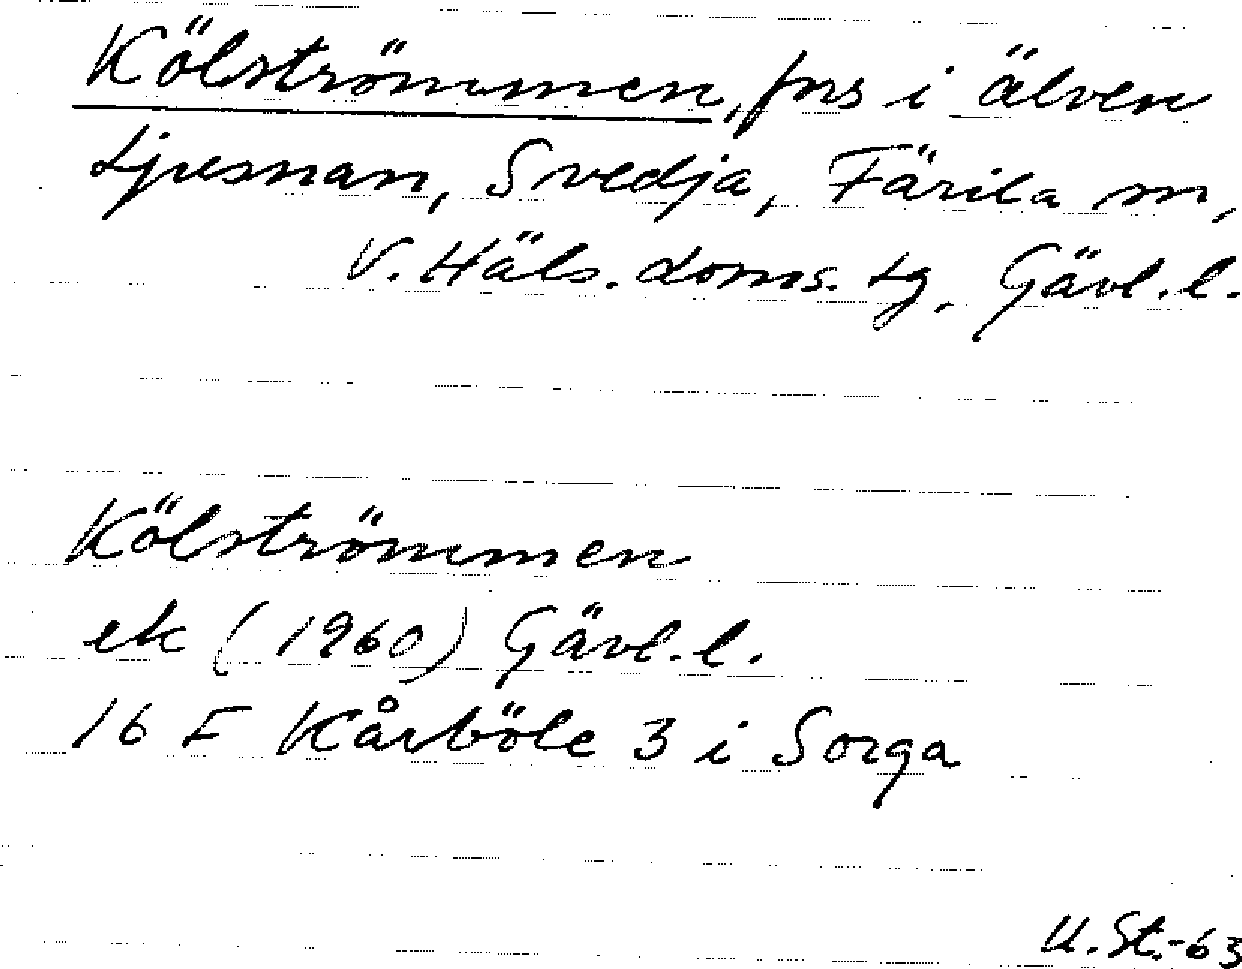 Kölströmmen, fors i älven
Ljusnan, Svedja, Färila sn,
V. Häls. doms. tg, Gävl.l.
Kölströmmen
ek (1960) Gävl.l.
16 F Kårböle 3 i Sorga
U.St.-63